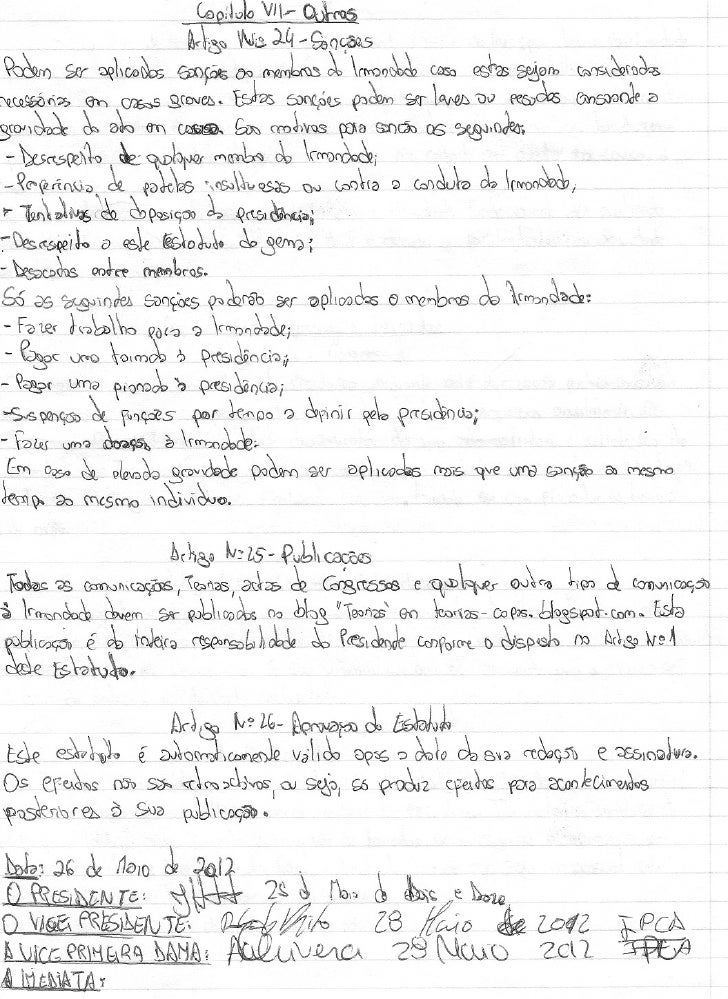 Capitulo VII - Outros
Artigo Nº 24 - Sanções
Podem ser aplicadas sanções ao membros da Irmandade caso estas sejam consideradas
necessárias em casos graves. Estas sanções podem ser leves ou pesadas consoante a
gravidade do ato em causa. São motivos para sanção os seguintes:
- Desrespeito de qualquer membro da Irmandade;
- Proferência de palavras insultuosas ou contra a conduta da Irmandade;
- Tentativas de deposição da presidência;
- Desrespeito a este Estatuto do gema;
- Desacatos entre membros.
Só as seguintes sanções poderão ser aplicadas a membros da Irmandade:
- Fazer trabalho para a Irmandade;
- Pagar uma à presidência;
- Pagar uma à presidência;
- Suspenção de funções por tempo a definir pela presidência;
- Fazer uma doação à Irmandade.
Em caso de elevada gravidade podem ser aplicadas mais que uma sanção ao mesmo
tempo ao mesmo individuo.
Artigo Nº 25 - Publicações
Todas as comunicações, Teorias, actas de Congressos e qualquer outro tipo de comunicação
à Irmandade devem ser publicados no blog "Teorias" em teorias-copos.blogspot.com. Esta
publicação é da inteira responsabilidade do Presidente conforme o disposto no Artigo Nº 1
deste Estatuto.
Artigo Nº 26 - Aprovação do Estatuto
Este estatuto é automaticamente válido após a data da sua redação e assinatura.
Os efeitos não são retroactivos, ou seja, só produz efeitos para acontecimentos
posteriores à sua publicação.
Data: 26 de Maio de 2012
O PRESIDENTE: 28 d Maio de Dois e Doze
O VICE PRESIDENTE: 28 Maio de 2012 IPCA
A VICE PRIMEIRA DAMA: 29 Maio 2012 IPCA
A IMEDIATA: